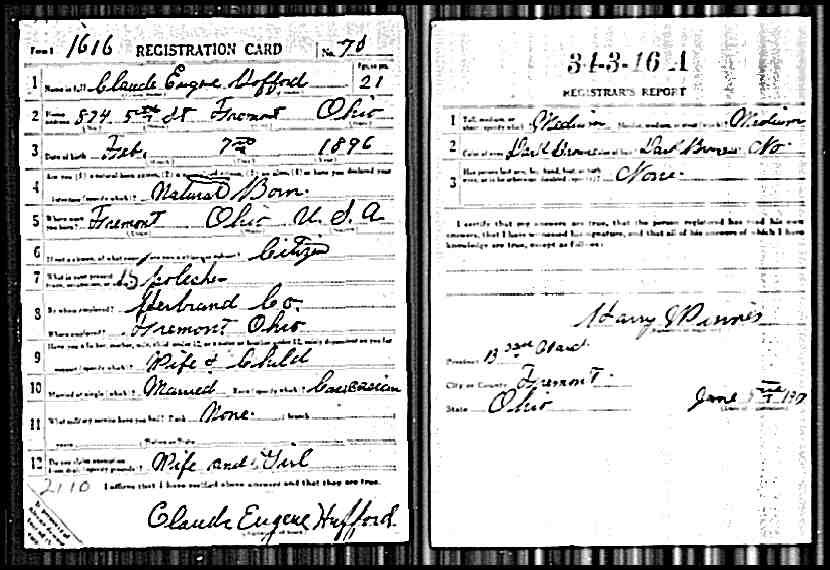 Form 1 1616 REGISTRATION CARD No. 70
1 Name in full Claude Eugene Hofford Age, in yrs. 21
2 Home address 874 5th St Fremont Ohio
3 Date of birth Feb. 7 1896
4 Are you (1) a natural born citizen, (2) a naturalized citizen, (3) an alien, (4) or have you declared your
intention (specify which)? Natural Born.
5 Where were you born? Fremont Ohio U. S. A
6 If not a citizen, of what country are you a citizen or subject? Citizen
7 What is your present trade, occupation, or office?
8 By whom employed? Herbrand Co.
Where employed? Fremont Ohio
9 Have you a father, mother, wife, child under 12, or a sister or brother under 12, solely dependent on you for
support (specify which)? Wife & Child
10 Married or single (which)? Married Race (specify which)? Caucasian
11 What military service have you had? Rank None. branch
years Nation or State
12 Do you claim exemption from draft (specify grounds)? Wife and Girl
2110 I affirm that I have verified above answers and that they are true.
Claude Eugene Hufford.
34-3-16 A
REGISTRAR'S REPORT
1 Tall, medium, or short (specify which)? Medium Slender, medium, or stout (which)? Medium
2 Color of eyes Dark Brown Color of hair Dark Brown No
3 Has person lost arm, leg, hand, foot, or both eyes, or is he otherwise disabled (specify)? None.
I certify that my answers are true, that the person registered has read his own
answers, that I have witnessed his signature, and that all of his answers of which I have
knowledge are true, except as follows:
Precinct B Ward
City or County Fremont.
State Ohio June 5 1917